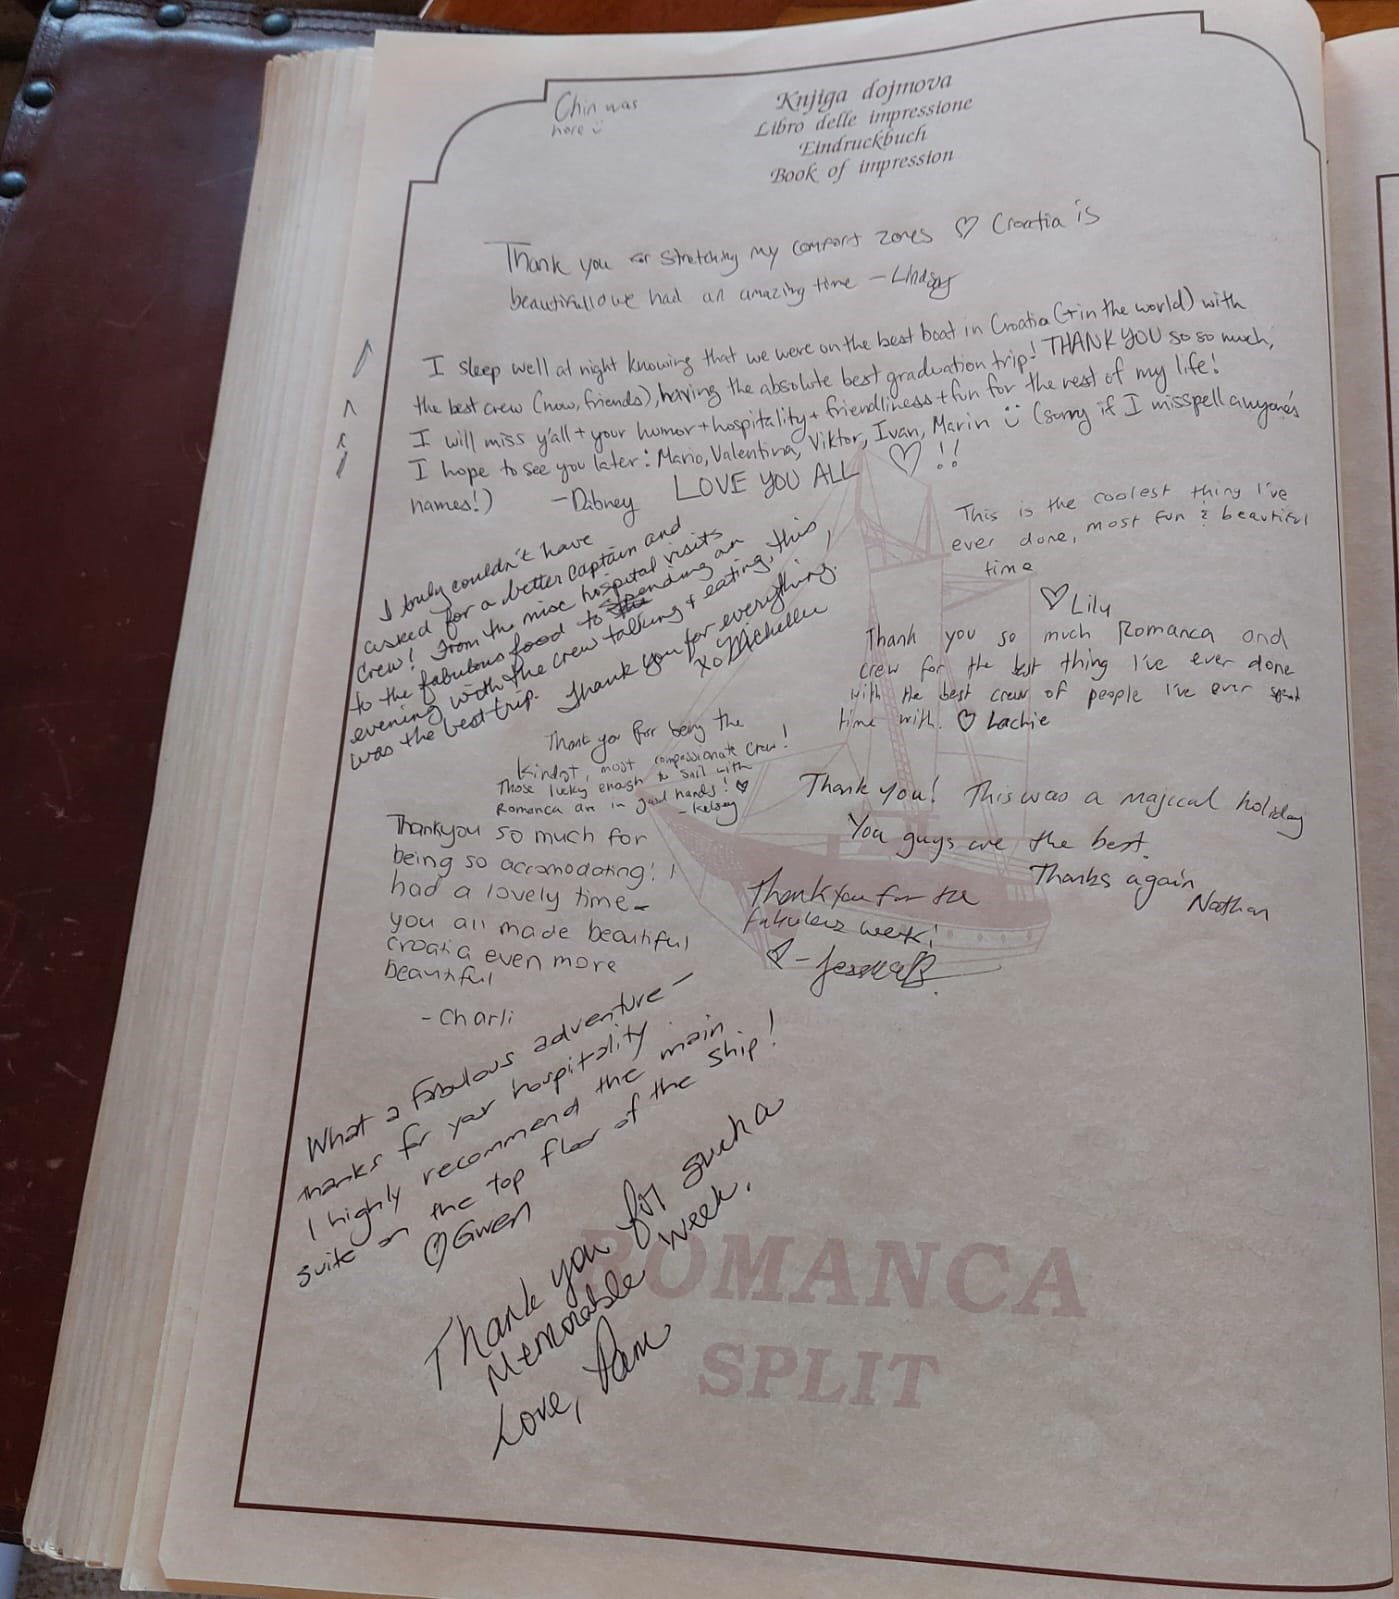 Chin was
here
Knjiga dojmova
Libro delle impressione
Eindruckbuch
Book of impression
Thank you for stretching my comfort zones ♡ Croatia is
beautiful we had an amazing time - Lindsay
I sleep well at night knowing that we were on the best boat in Croatia (+ in the world) with
the best crew (now, friends), having the absolute best graduation trip! THANK YOU so so much,
I will miss y'all + your humor + hospitality + friendliness + fun for the rest of my life!
I hope to see you later: Mario, Valentina, Viktor, Ivan, Marin ü (sorry if I misspell anyone's
names!) - Dabney LOVE YOU ALL ♡!!
I truly couldn't have
asked for a better captain and
crew! From the misc hospital visits
to the fabulous food to spending an
evening with the crew talking + eating, this,
was the best trip. Thank you for everything.
xo Michelle
This is the coolest thing I've
ever done, most fun & beautiful
time
♡ Lily
Thank you so much Romanca and
crew for the best thing I've ever done
with the best crew of people I've ever spent
time with. ♡ Lachie
Thank you for being the
kindest, most compassionate crew!
Those lucky enough to sail with
Romanca are in good hands! ♡
- Kelsey
Thank you! This was a majical holiday
You guys are the best.
Thanks again
Nathan
Thankyou so much for
being so accomodating! I
had a lovely time-
you all made beautiful
Croatia even more
beautiful
- Charli
Thank you for the
fabulous week!
♡ - Jessica B.
What a fabulous adventure -
Thanks for your hospitality
I highly recommend the main
suite on the top floor of the ship!
♡ Gwen
Thank you for such a
Memorable week.
Love, Pam
ROMANCA
SPLIT